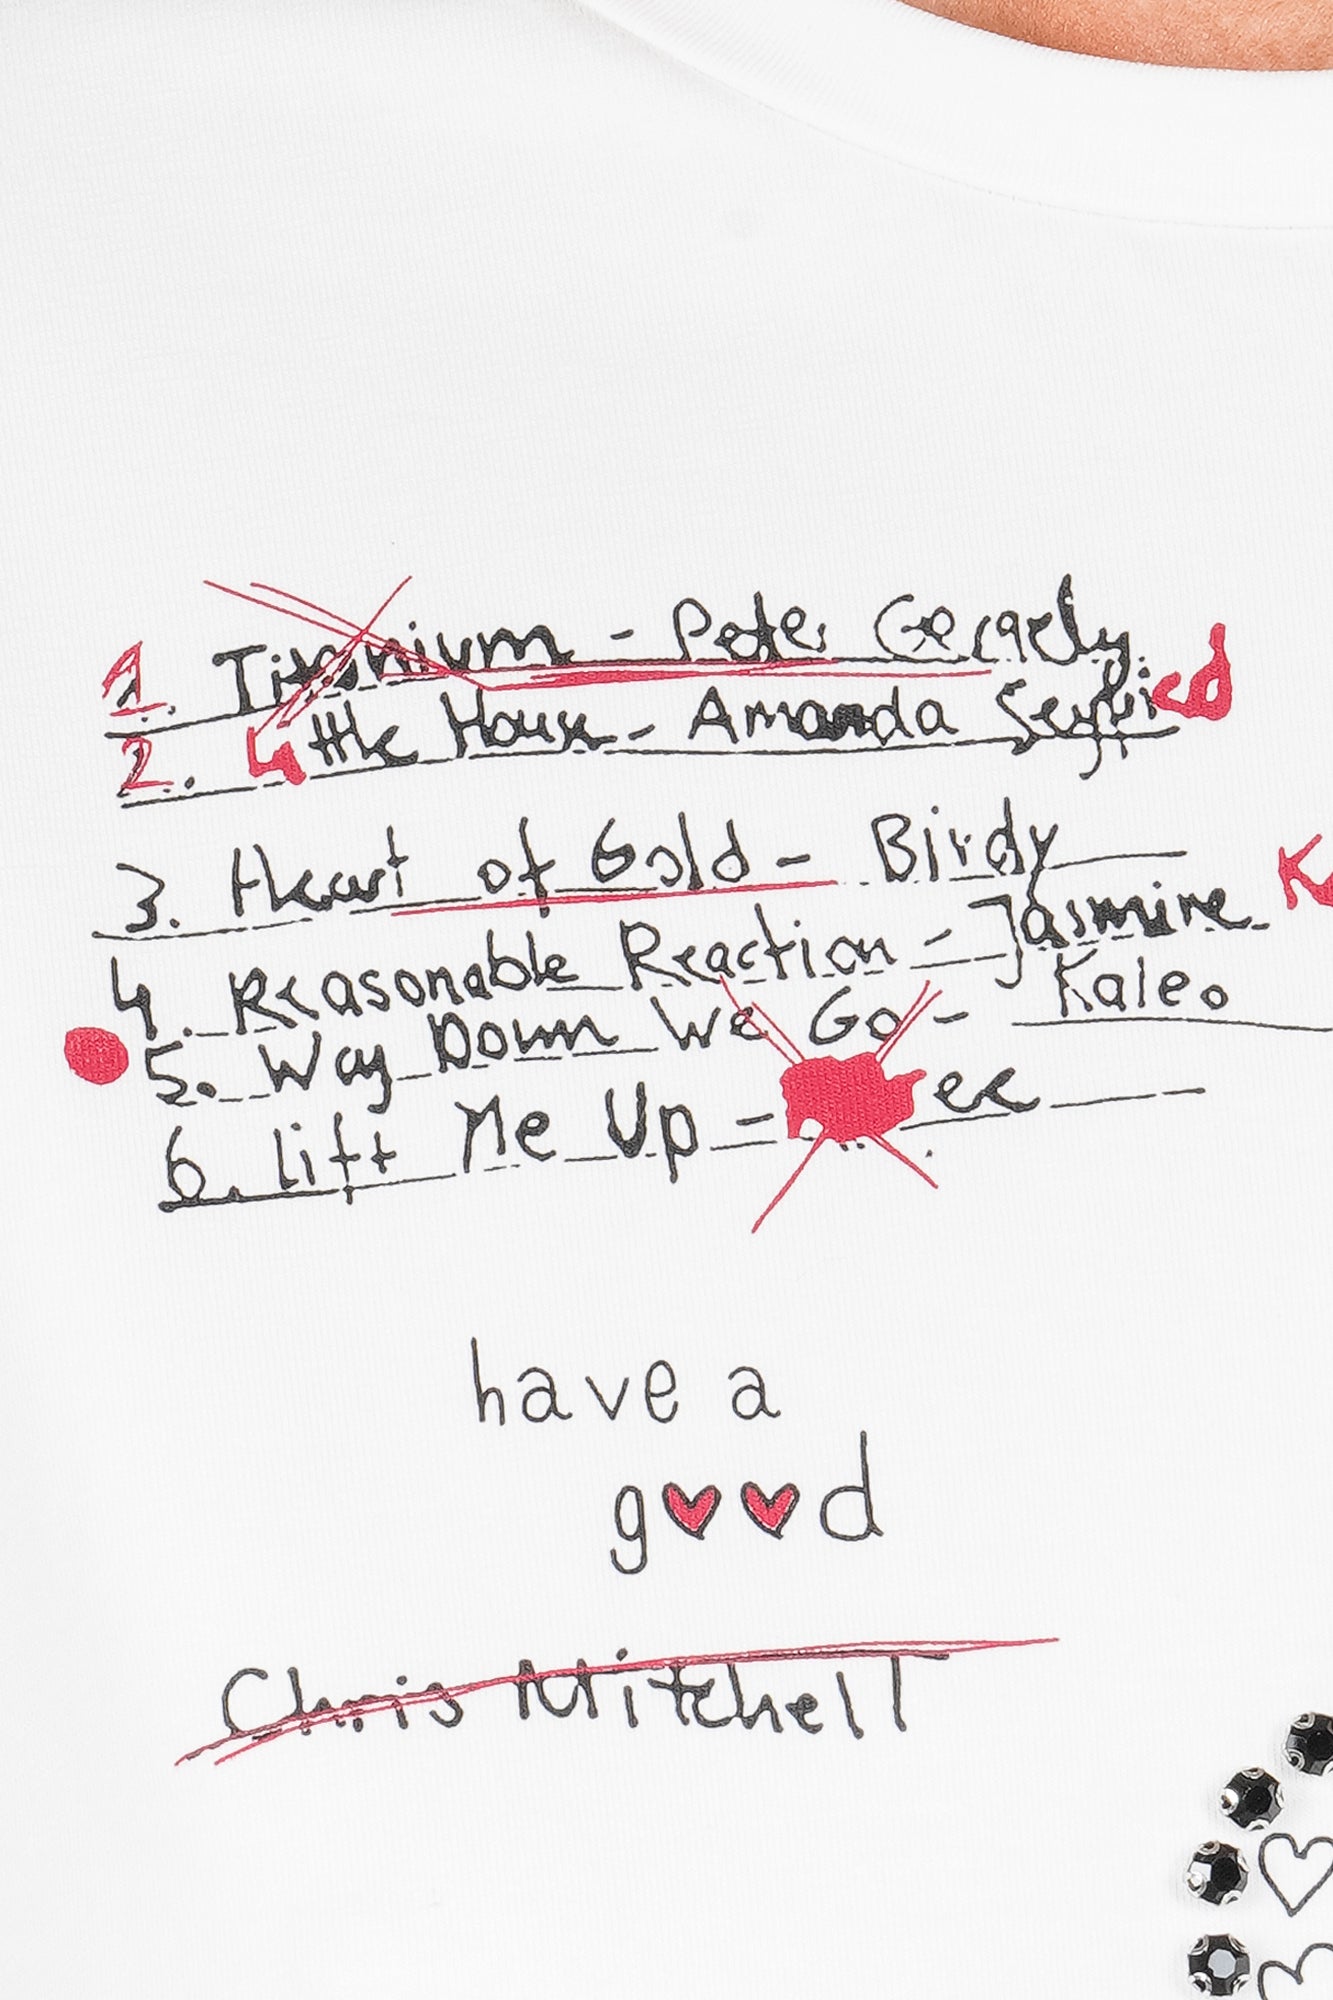 1. Titanium - Peter Gergely
2. Little House - Amanda Seyfried
3. Heart of Gold - Birdy
4. Reasonable Reaction - Jasmine
5. Way Down We Go - Kaleo
6. lift Me Up -
have a
good
Chris Mitchell